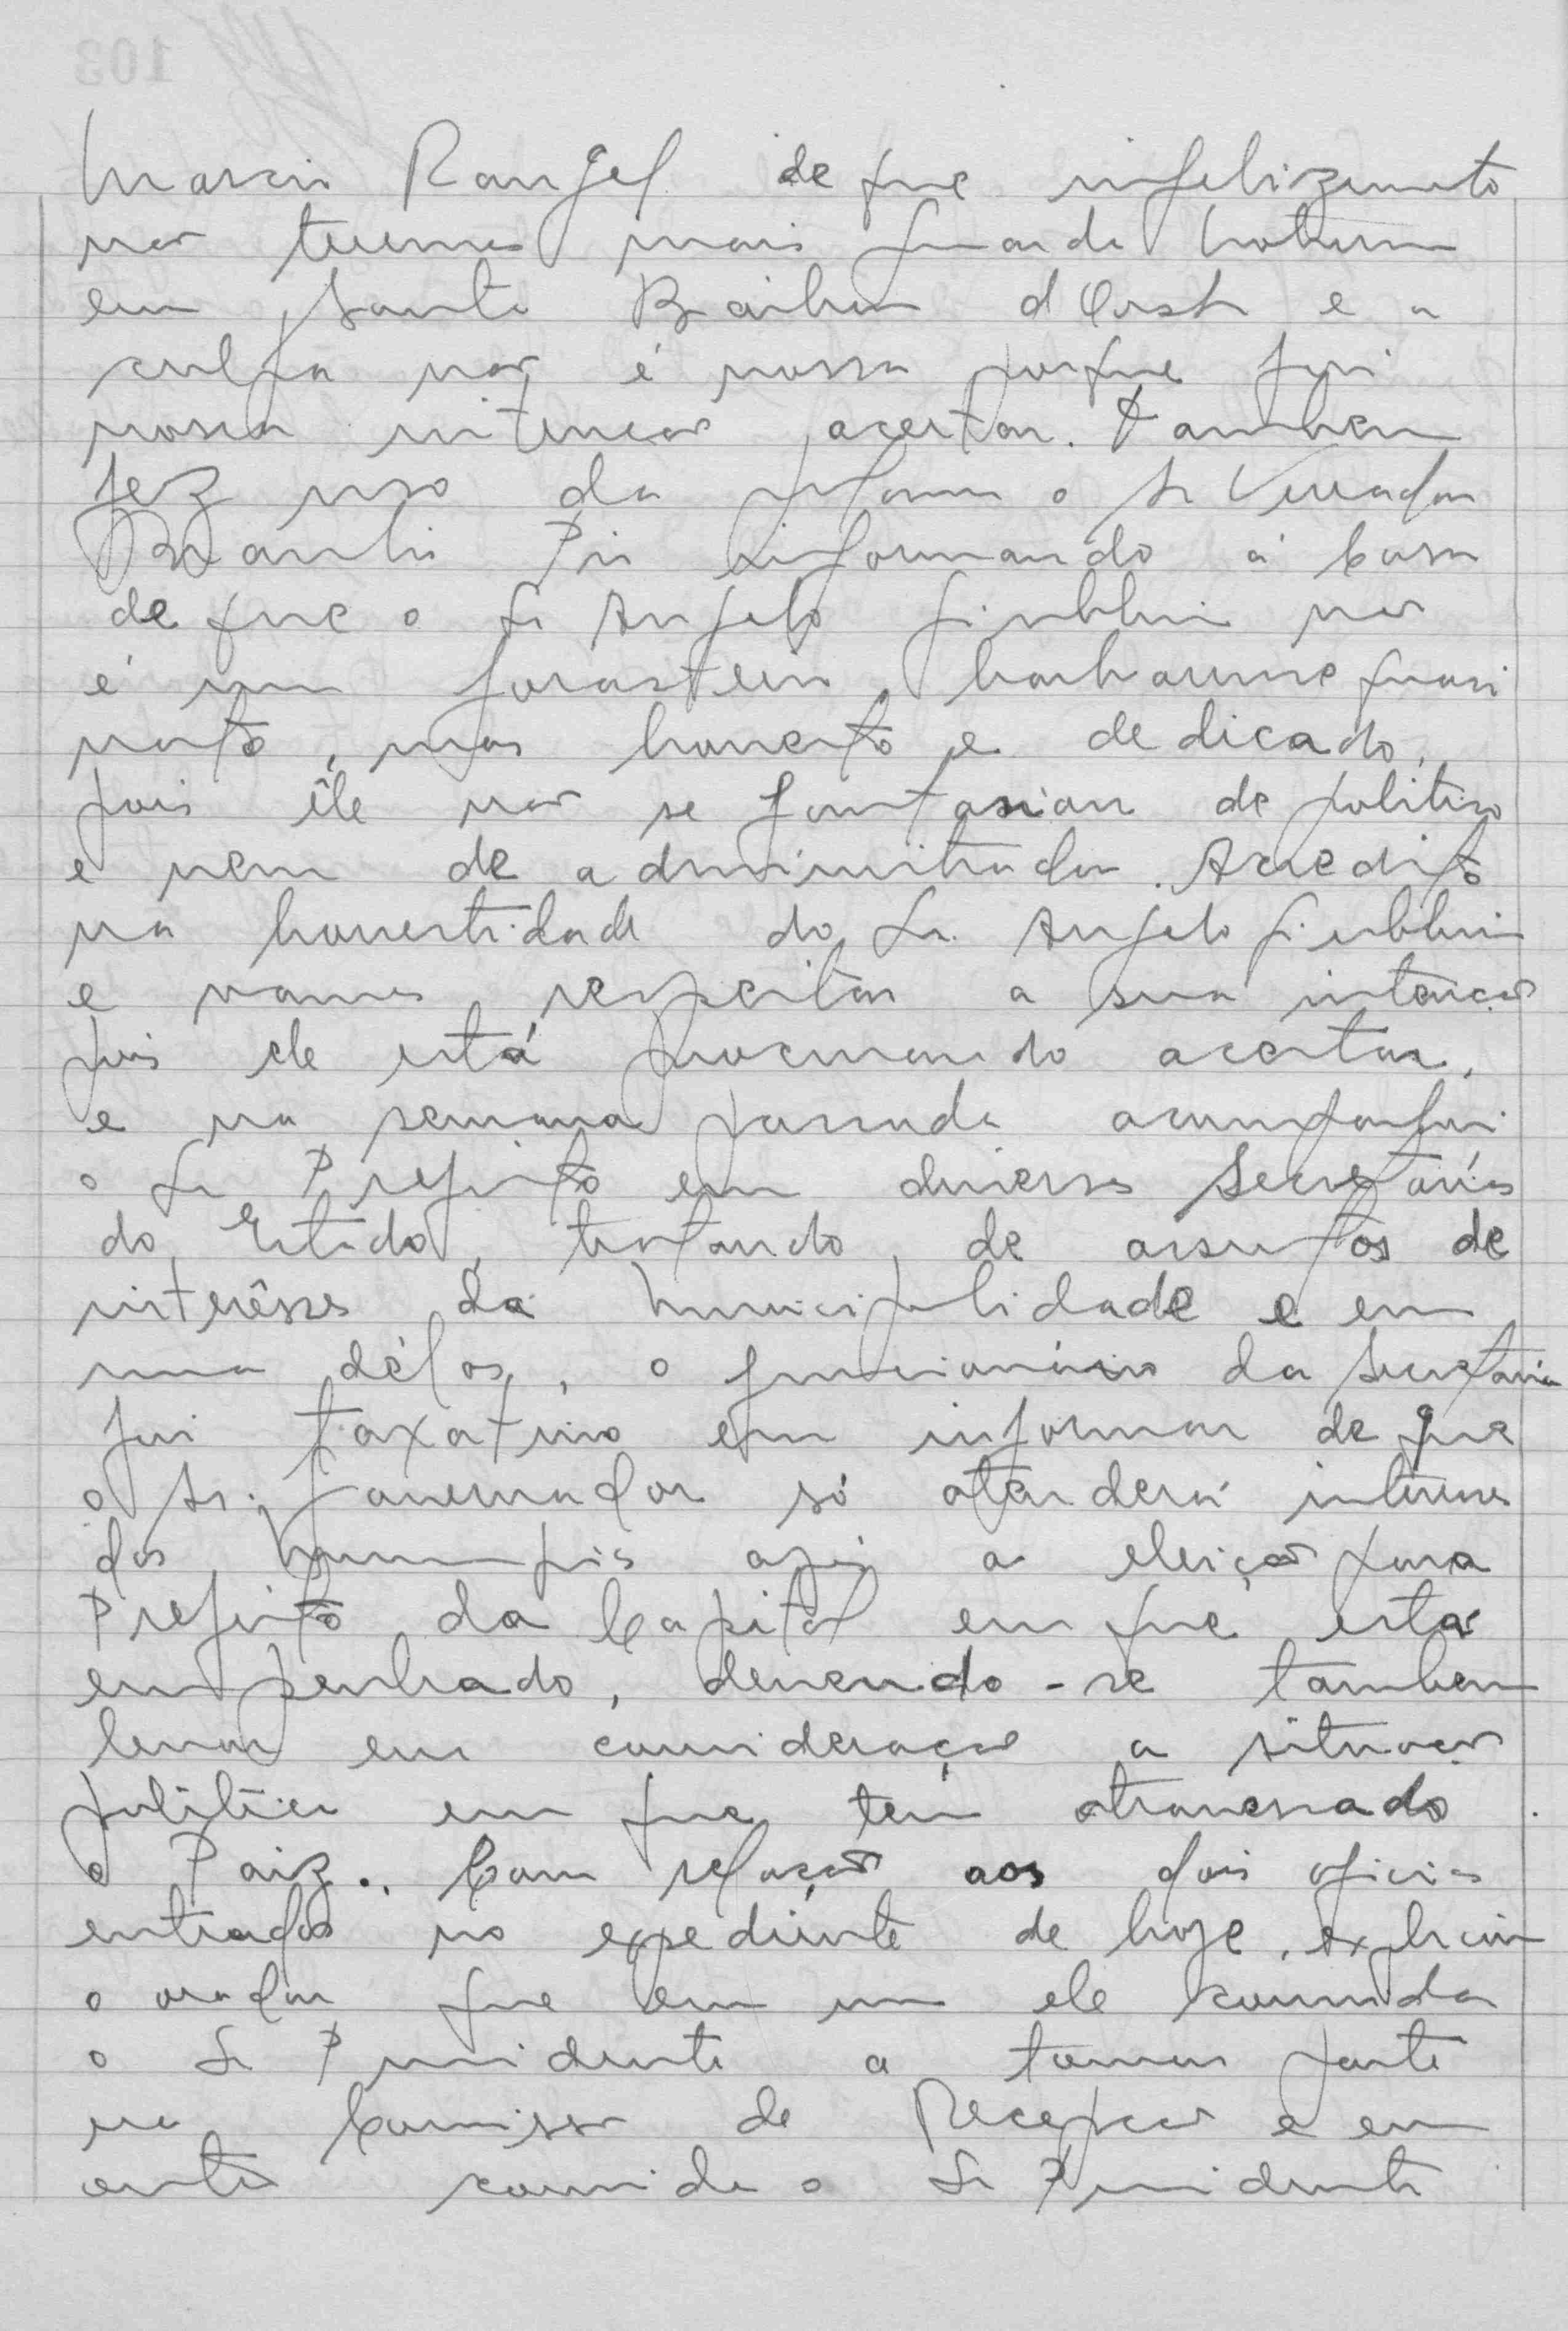 Marcio Rangel de que infelizmente
não teremos mais guarda noturna
em Santa Barbara d'Oeste e a
culpa não é nossa porque foi
nossa intenção acertar. Tambem
fez uso da palavra o Sr Vereador
Braulio Pio informando á Casa
de que o Sr Angelo Giubbini não
é um forasteiro, barbarense quasi
nato, mas honesto e dedicado,
pois êle não se fantasiou de politico
e nem de administrador. Acredito
na honestidade do Sr. Angelo Giubbini
e vamos respeitar a sua intenção
pois ele está procurando acertar,
e na semana passada acompanhei
o Sr Prefeito em diversas Secretarías
do Estado, tratando de assuntos de
interêsses da Municipalidade e em
uma délas, o funcionário da Secretaria
foi taxativo em informar de que
o Sr. Governador só atenderá interesses
dos Municipios após a eleição para
Prefeito da Capital em que está
empenhado, devendo-se tambem
levar em consideração a situação
politica em que tem atravessado
o Paiz. Com relação aos dois oficios
entrados no expediente de hoje, explicou
o orador que em um ele convida
o Sr Presidente a tomar parte
na Comissão de Recepção e em
outro convida o Sr Presidente